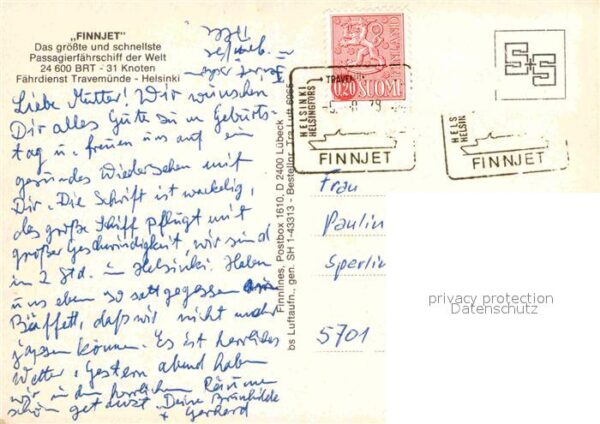 „FINNJET"
Das größte und schnellste
Passagierfährschiff der Welt
24 600 BRT - 31 Knoten
Fährdienst Travemünde - Helsinki
Liebe Mutter! Wir wünschen
Dir alles Gute zum Geburts-
tag u. freuen uns auf ein
gesundes Wiedersehen mit
Dir. Die Schrift ist wackelig,
das große Schiff pflügt mit
großer Geschwindigkeit, wir sind
in 2 Std. in Helsinki. Haben
uns eben so satt gegessen am
Büffett, daß wir nicht mehr
japsen können. Es ist herrliches
Wetter, Gestern abend haben
wir in den herrlichen Räumen
schön getanzt. Deine Brünhilde
+ Gerhard
Finnlines, Postbox 1610, D 2400 Lübeck
bs Luftaufn., gen. SH 1-43313 - Bestellnr. Tra Luft 6065
0,20 SUOMI
HELSINKI
HELSINGFORS
TRAVEM
FINNJET
HELS
HELSIN
FINNJET
S+S
Frau
Paulin
Sperlin
5701
privacy protection
Datenschutz